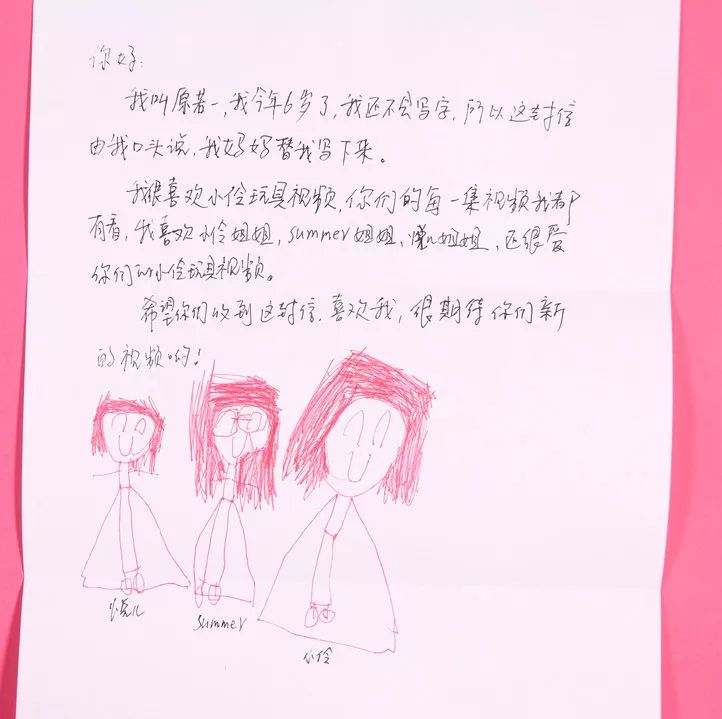 你好:
我叫原若一,我今年6岁了,我还不会写字,所以这封信
由我口头说,我妈妈替我写下来。
我很喜欢小伶玩具视频,你们的每一集视频我都
有看,我喜欢小伶姐姐,summer姐姐,姐姐,还很爱
你们的小伶玩具视频。
希望你们收到这封信,喜欢我,很期待你们新
的视频哟!
summer
小伶